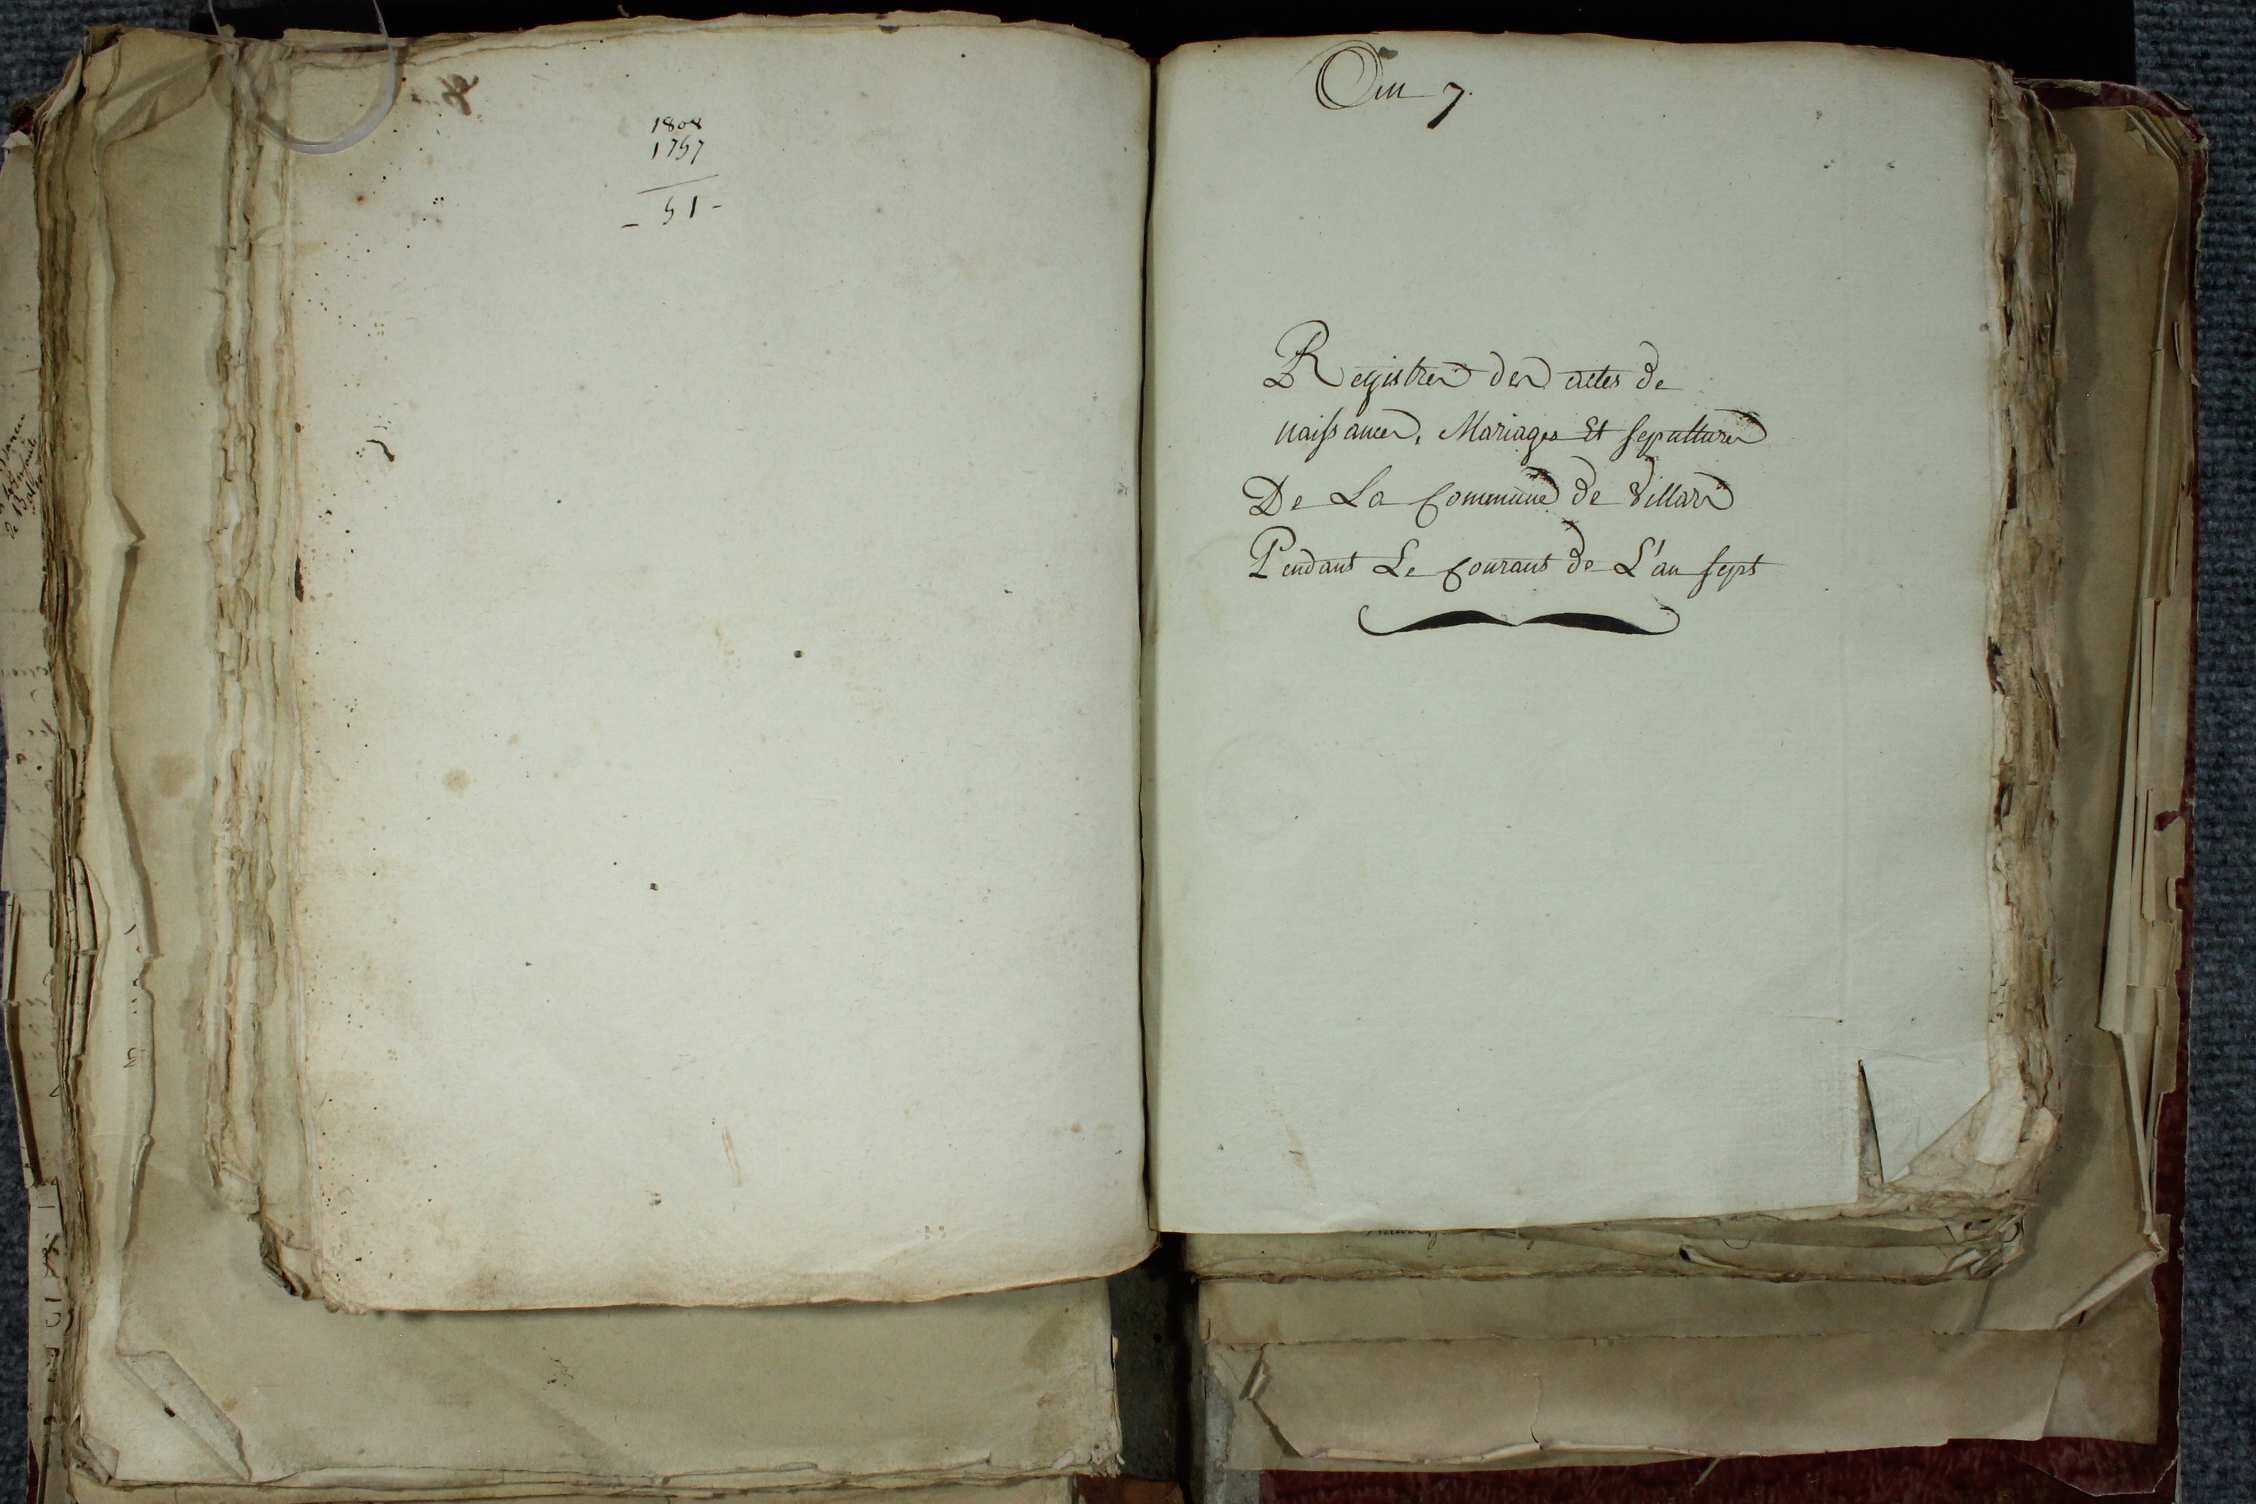 1808
1757
- 51 -
An 7.
Registres des actes de
naissances, Mariages Et sepultures
De La Commune de Villars
Pendant Le Courant de L'an sept